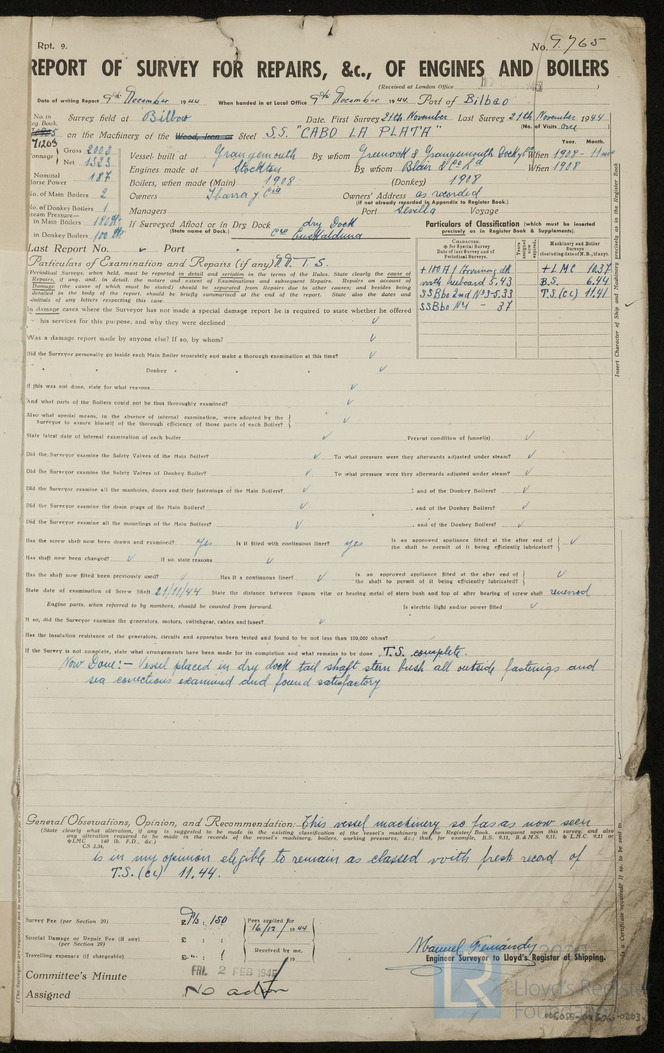 Rpt. 9.
No. 9.765
REPORT OF SURVEY FOR REPAIRS, &c., OF ENGINES AND BOILERS
(Received at London Office )
Date of writing Report 9th December 1944 When handed in at Local Office 9th December 1944. Port of Bilbao
No. in Survey held at Bilbao Date. First Survey 21th November Last Survey 21th November 1944
Reg. Book. (No. of Visits one)
71203 on the Machinery of the Wood, Iron or Steel S.S. "CABO LA PLATA"
Tonnage Gross 2003 Net 1523
Vessel built at Grangemouth By whom Greenock & Grangemouth Dockyd Co When 1908 - 11
Year. Month.
Nominal Horse Power 187
Engines made at Stockton By whom Blair & Co Ld When 1908
No. of Main Boilers 2
Boilers, when made (Main) 1908 (Donkey) 1908
No. of Donkey Boilers 1
Owners Ibarra y Cia Owners' Address as recorded
(if not already recorded in Appendix to Register Book.)
Steam Pressure—
in Main Boilers 180
Managers Port Sevilla Voyage
in Donkey Boilers 100
If Surveyed Afloat or in Dry Dock dry Dock
(State name of Dock.) Cia Euskalduna
Particulars of Classification (which must be inserted precisely as in Register Book & Supplements).
Last Report No. Port
CHARACTER. Machinery and Boiler Surveys (including date of N.B., if any).
+LMC 12.37
with freeboard 5.43 B.S. 6.44
SSBbo 2nd No 3-5.33 T.S.(CL) 11.41
SSBbo No 1 - 37
Particulars of Examination and Repairs (if any) T.S.
Periodical Surveys, when held, must be reported in detail and seriatim in the terms of the Rules. State clearly the cause of Repairs, if any, and, in detail, the nature and extent of Examinations and subsequent Repairs. Repairs on account of Damage (the cause of which must be stated) should be separated from Repairs due to other causes; and besides being detailed in the body of the report, should be briefly summarised at the end of the report. State also the dates and initials of any letters respecting this case.
In damage cases where the Surveyor has not made a special damage report he is required to state whether he offered
his services for this purpose, and why they were declined
Was a damage report made by anyone else? If so, by whom?
Did the Surveyor personally go inside each Main Boiler separately and make a thorough examination at this time?
" " Donkey " "
If this was not done, state for what reasons
And what parts of the Boilers could not be thus thoroughly examined?
Also what special means, in the absence of internal examination, were adopted by the Surveyor to assure himself of the thorough efficiency of those parts of each Boiler?
State latest date of internal examination of each boiler Present condition of funnel(s)
Did the Surveyor examine the Safety Valves of the Main Boiler? To what pressure were they afterwards adjusted under steam?
Did the Surveyor examine the Safety Valves of Donkey Boiler? To what pressure were they afterwards adjusted under steam?
Did the Surveyor examine all the manholes, doors and their fastenings of the Main Boilers? , and of the Donkey Boilers?
Did the Surveyor examine the drain plugs of the Main Boilers? , and of the Donkey Boilers?
Did the Surveyor examine all the mountings of the Main Boilers? , and of the Donkey Boilers?
Has the screw shaft now been drawn and examined? Yes Is it fitted with continuous liner? yes Is an approved appliance fitted at the after end of the shaft to permit of it being efficiently lubricated?
Has shaft now been changed? If so, state reasons
Has the shaft now fitted been previously used? Has it a continuous liner? Is an approved appliance fitted at the after end of the shaft to permit of it being efficiently lubricated?
State date of examination of Screw Shaft 21/11/44 State the distance between lignum vitæ or bearing metal of stern bush and top of after bearing of screw shaft renewed
Engine parts, when referred to by numbers, should be counted from forward. Is electric light and/or power fitted
If so, did the Surveyor examine the generators, motors, switchgear, cables and fuses?
Has the insulation resistance of the generators, circuits and apparatus been tested and found to be not less than 100,000 ohms?
If the Survey is not complete, state what arrangements have been made for its completion and what remains to be done T.S. complete.
Now Done:- Vessel placed in dry dock tail shaft stern bush all outside fastenings and
sea conections examined and found satisfactory
General Observations, Opinion, and Recommendation:- This vessel machinery so far as now seen
(State clearly what alteration, if any is suggested to be made in the existing classification of the vessel's machinery in the Register Book, consequent upon this survey, and also any alteration required to be made in the records of the vessel's machinery, boilers, working pressures, &c.; thus, for example, B.S. 9,11, B.&M.S. 9,11, LMC 9,11 or LMC 140 lb. F.D., &c.)
is in my opinion eligible to remain as classed with fresh record of
T.S. (CL) 11.44.
Survey Fee (per Section 29) 150 Fees applied for
16/12/1944
Special Damage or Repair Fee (if any) (per Section 29)
Received by me,
Travelling expenses (if chargeable) 19
Manuel Fernandy
Engineer Surveyor to Lloyd's Register of Shipping.
Committee's Minute FRI. 2 FEB 1945
Assigned No action
Insert Character of Ship and Machinery precisely as in the Register Book
LR
Lloyd's Register
Foundation